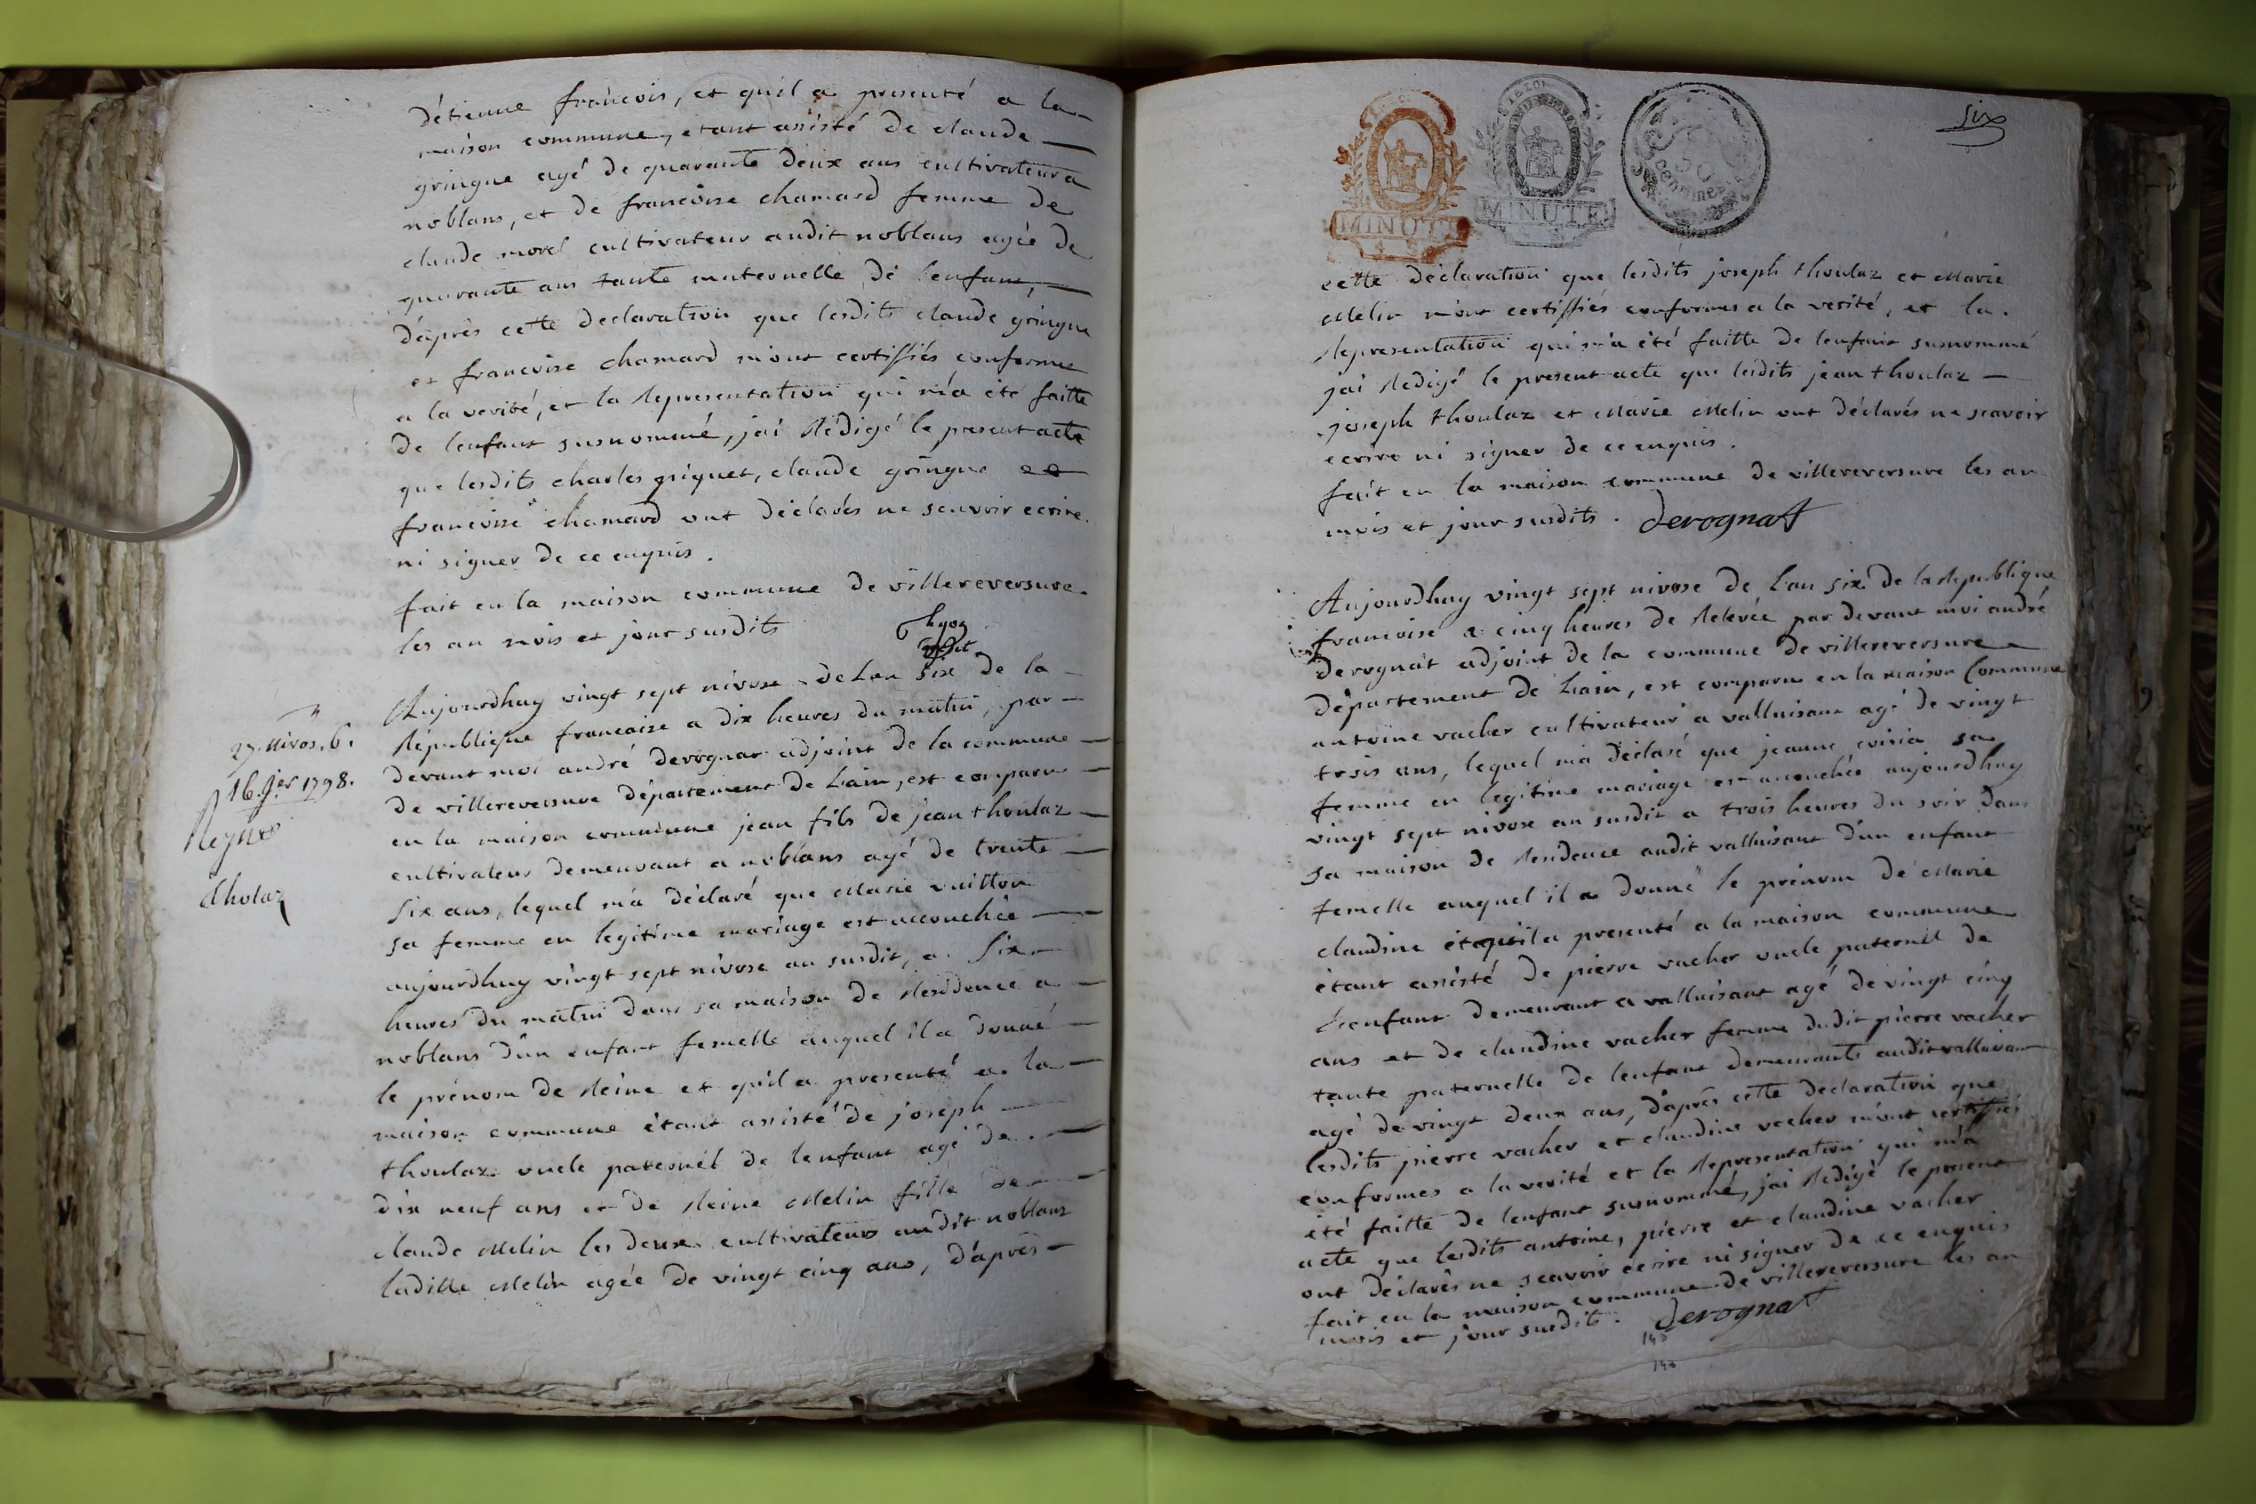 détienne francois, et quil a presenté a la
maison commune, etant assisté de claude
gringue agé de quarante deux ans cultivateur a
noblans, et de francoise chamard femme de
claude morel cultivateur audit noblans agée de
quarante ans tante maternelle de lenfant,
daprès cette declaration que lesdits claude gringue
et francoise chamard mont certiffiés conforme
a la verité, et la Representation qui ma été faitte
de lenfant susnommé, jai Rédigé le present acte
que lesdits charles griquet, claude gringue et
francoise chamard ont déclarés ne scavoir ecrire
ni signer de ce enquis.
fait en la maison commune de villereversure
les an mois et jour susdits
27. Nivos. 6.
16. Jer 1798.
Reyne
tholaz
Aujourdhuy vingt sept nivose de Lan six de la
République francaise a dix heures du matin, par
devant moi andré derognat adjoint de la commune
de villereversure département de Lain, est comparu
en la maison commune jean fils de jean thoulaz
cultivateur demeurant a noblans agé de trente
six ans, lequel ma déclaré que Marie vuitton
sa femme en legitime mariage est accouchée
aujourdhuy vingt sept nivose an susdit, a six
heures du matin dans sa maison de Residence a
noblans d'un enfant femelle auquel il a donné
le prénom de Reine et quil a presenté a la
maison commune étant assisté de joseph
thoulaz oncle paternel de lenfant agé de
dix neuf ans et de Reine Melin fille de
claude Melin les deux cultivateurs audit noblans
laditte Melin agée de vingt cinq ans, d'après
MINUTE
MINUTE
50
centimes
six
cette déclaration que lesdits joseph thoulaz et Marie
Melin mont certiffiés conformes a la verité, et la
Representation qui m'a été faitte de lenfant susnommé
jai Redigé le present acte que lesdits jean thoulaz
joseph thoulaz et Marie Melin ont déclarés ne scavoir
ecrire ni signer de ce enquis.
fait en la maison commune de villereversure les an
mois et jour susdits. derognat
Aujourdhuy vingt sept nivose de Lan six de la Republique
francoise a cinq heures de Relevée par devant moi andré
derognat adjoint de la commune de villereversure
département de Lain, est comparu en la maison Commune
antoine vacher cultivateur a valluisant agé de vingt
trois ans, lequel ma déclaré que jeanne sa
femme en legitime mariage est accouchée aujourdhuy
vingt sept nivose an susdit a trois heures du soir dans
sa maison de Residence audit valluisant d'un enfant
femelle auquel il a donné le prénom de Marie
claudine et quil a presenté a la maison commune
étant assisté de pierre vacher oncle paternel de
Lenfant demeurant a valluisant agé de vingt cinq
ans et de claudine vacher femme dudit pierre vacher
tante paternelle de lenfant demeurants audit valluisant
agé de vingt deux ans, daprès cette declaration que
lesdits pierre vacher et claudine vacher mont certiffiés
conformes a la verité et la Representation qui m'a
été faitte de lenfant susnommé, jai Redigé le present
acte que lesdits antoine, pierre et claudine vacher
ont déclarés ne scavoir ecrire ni signer de ce enquis
fait en la maison commune de villereversure les an
mois et jour susdits. derognat
143
143